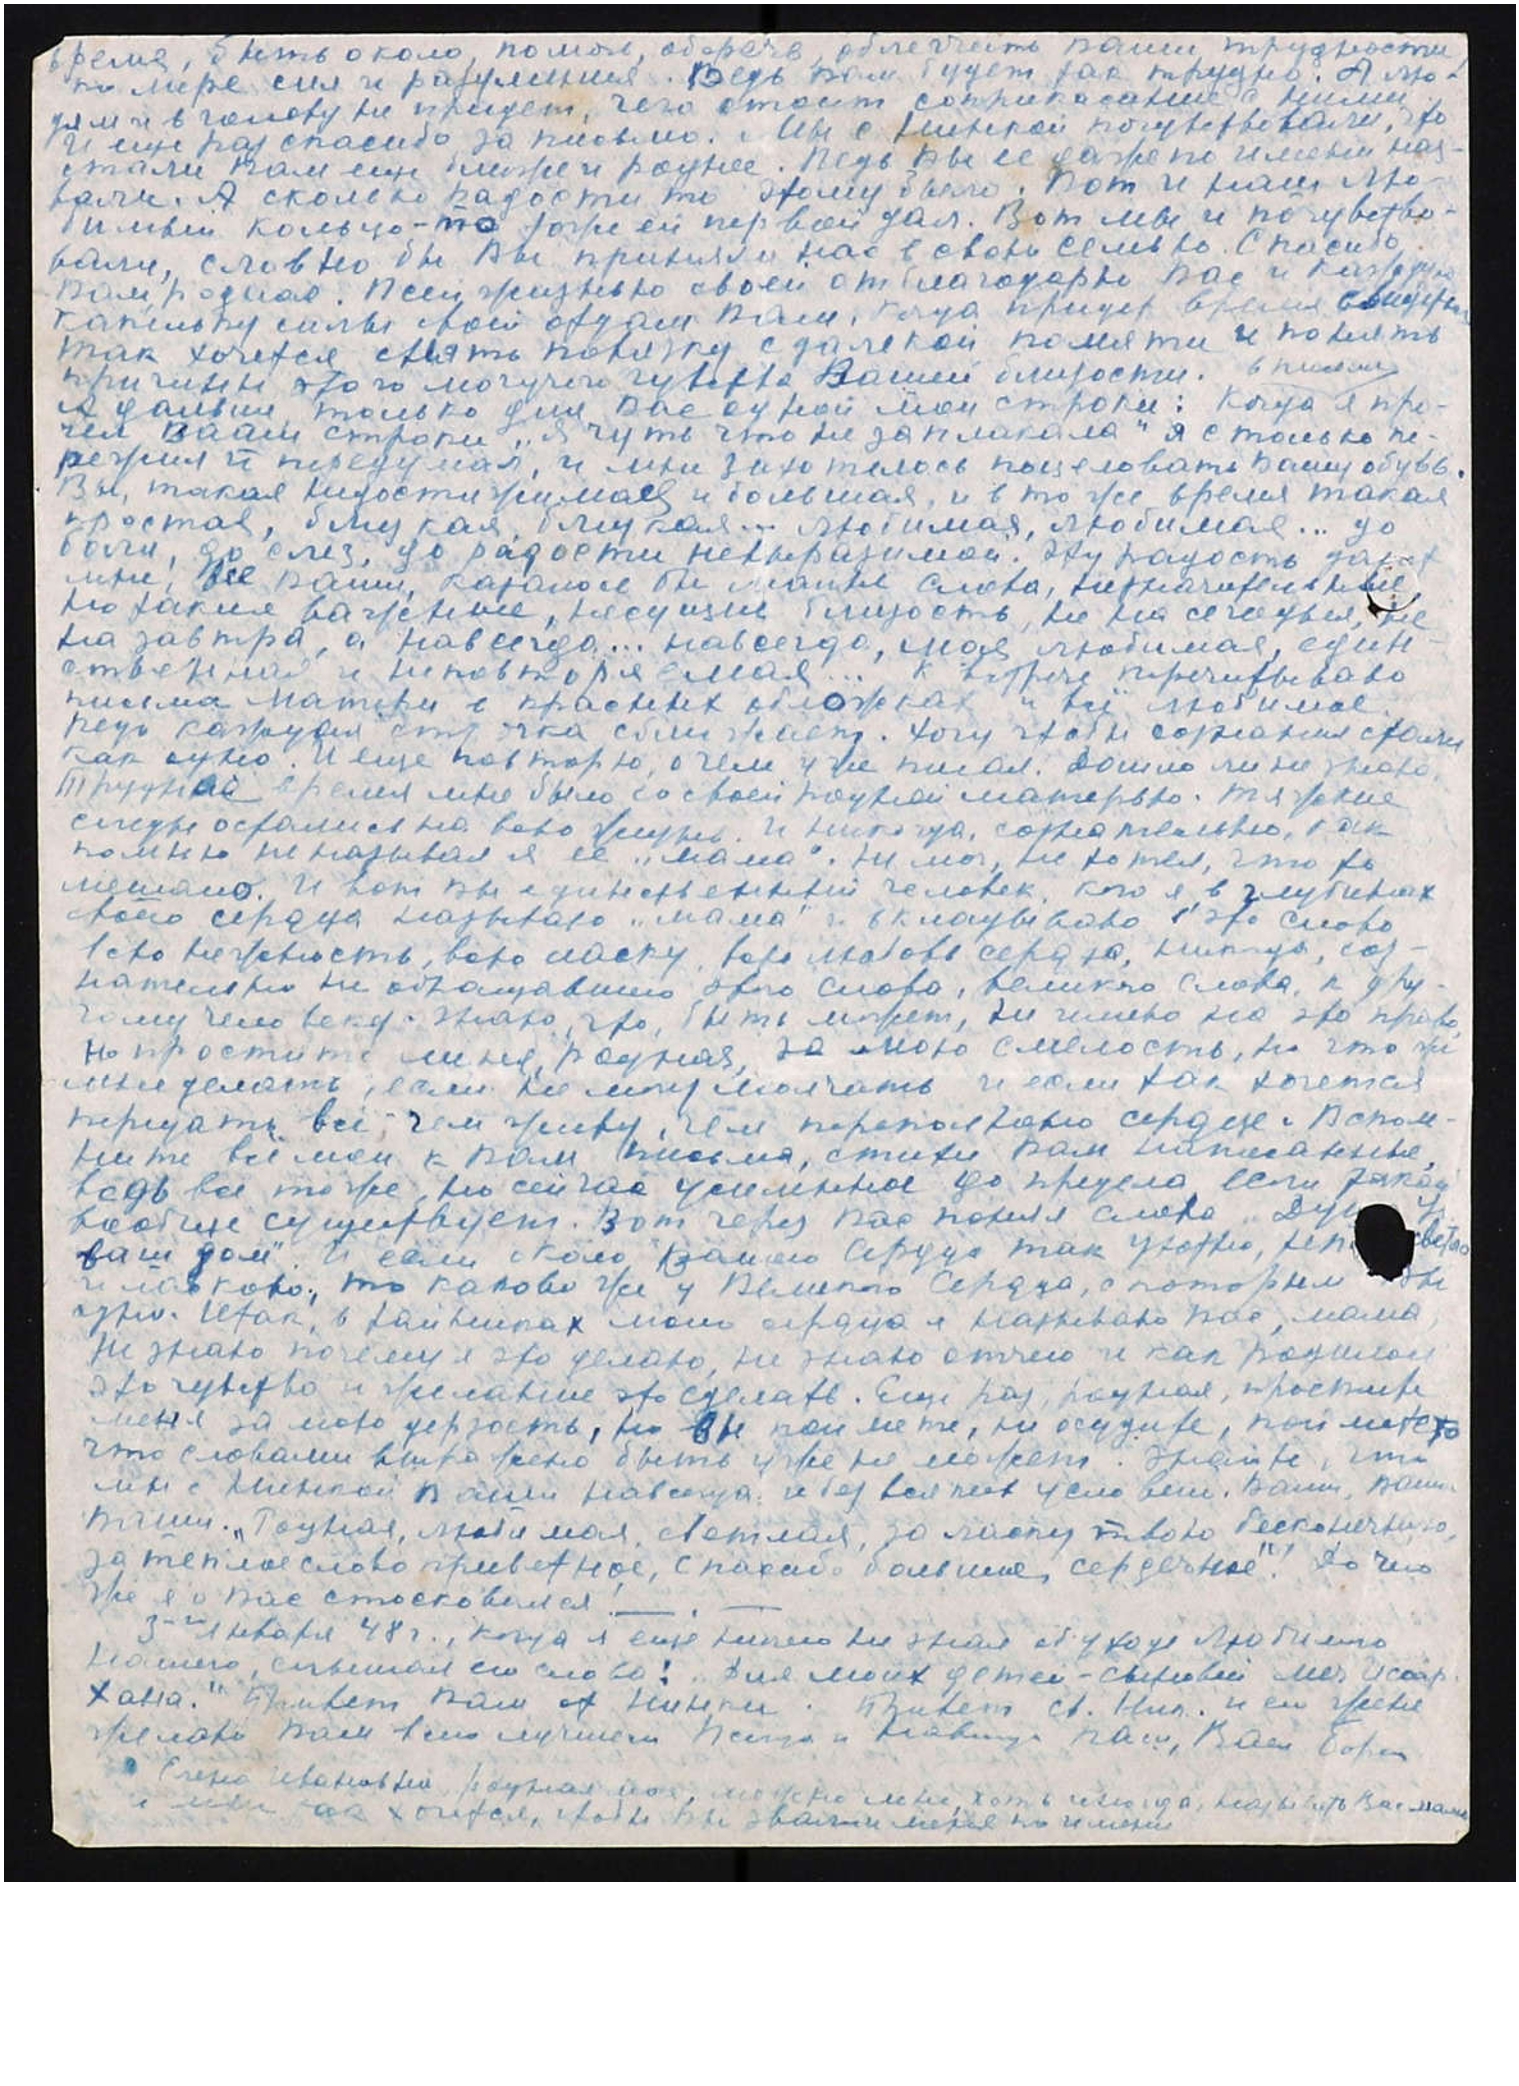 время, быть около, помочь, оберечь, облегчить Ваши трудности,
по мере сил и разумения. Ведь Вам будет так трудно. А лю-
дям и в голову не придет, чего стоит соприкасание с ними.
И еще раз спасибо за письмо. Мы с Нинкой почувствовали, что
стали Вам еще ближе и роднее. Ведь Вы ее даже по имени наз-
вали. А сколько радости то этому было. Вот и наш лю-
бимый кольцо-то тоже ей первой дал. Вот мы и почувство-
вали, словно бы Вы приняли нас в свою семью. Спасибо
Вам, родная. Всей жизнью своей отблагодарю Вас и каждую
капельку силы своей отдам Вам, когда придет время
Так хочется снять повязку с далекой памяти и понять
причины этого могучего чувства Вашей близости. в письме
А дальше только для Вас одной мои строки: Когда я про-
чел Ваши строки "я чуть что не заплакала" я столько пе-
режил и передумал, и мне захотелось поцеловать Вашу обувь.
Вы, такая недостижимая и большая, и в то же время такая
простая, близкая, близкая... любимая, любимая... до
боли, до слез, до радости невыразимой. Эту радость дают
мне, все Ваши, казалось бы малые слова, незначительные,
но такие важные, несущие близость, не на сегодня, не
на завтра, а навсегда... навсегда, моя любимая, един-
ственная и неповторяемая... К встрече перечитываю
письма Матери в красных обложках и всё любимое.
Ведь каждая строчка сближает. Хочу чтобы сознания стали
как одно. И еще повторю, о чем уже писал. Дошло ли не знаю.
Трудное время мне было со своей родной матерью. Тяжкие
следы остались на всю жизнь. И никогда, сознательно, как
помню не называл я ее "мама". Не мог, не хотел, что то
мешало. И вот Вы единственный человек, кого я, в глубинах
своего сердца называю "мама" и вкладываю в это слово
всю нежность, всю ласку, всю любовь сердца, никогда, соз-
нательно не обращавшего этого слова, великого слова, к дру-
гому человеку. Знаю, что, быть может, не имею на это права,
но простите меня, родная, за мою смелость, но что же
мне делать, если не могу молчать и если так хочется
передать всё, чем живу, чем переполнено сердце. Вспом-
ните все мои к Вам письма, стихи Вам написанные,
ведь все то же, но сейчас усиленное до предела если такой
вообще существует. Вот через Вас понял слова "
ваш дом". И если около Вашего Сердца так уютно, светло
и ласково, то каково же у Великого Сердца, с которым Вы
одно. Итак, в тайниках моего сердца я называю Вас, мама,
Не знаю почему я это делаю, не знаю отчего и как родилось
это чувство и желание это сделать. Еще раз, родная, простите
меня за мою дерзость, но Вы поймете, не осудите, поймете то
что словами выражено быть уже не может. Знайте, что
мы с Нинкой Ваши навсегда и без всяких условий. Ваши, Ваши
Ваши. "Родная, любимая, светлая, за ласку твою бесконечную,
за теплое слово приветное, спасибо большое, сердечное"! До чего
же я о Вас стосковался!
3-го Января 48 г., когда я еще ничего не знал об уходе Любимого
Нашего, слышал его слова: "Для моих детей-сыновей
." Привет Вам от Нинки. Привет Св. Ник. и его жене
желаю Вам всего лучшего Всегда и навсегда Ваш, Ваш Борис
Елена Ивановна родная моя, можно мне, хоть иногда, называть Вас мама
и мне так хочется, чтобы Вы звали меня по имени